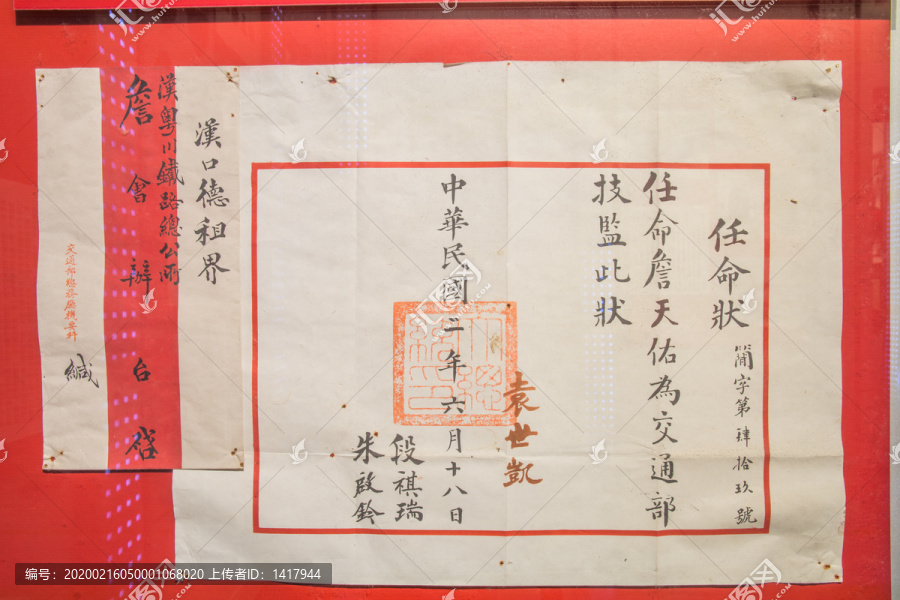 任命狀
簡字第肆拾玖號
任命詹天佑為交通部
技監此狀
袁世凱
中華民國二年六月十八日
段祺瑞
朱啟鈐
漢口德租界
漢粵川鐵路總公所
詹會辦台啓
交通部總務廳機要科
緘
编号：20200216050001068020 上传者ID：1417944